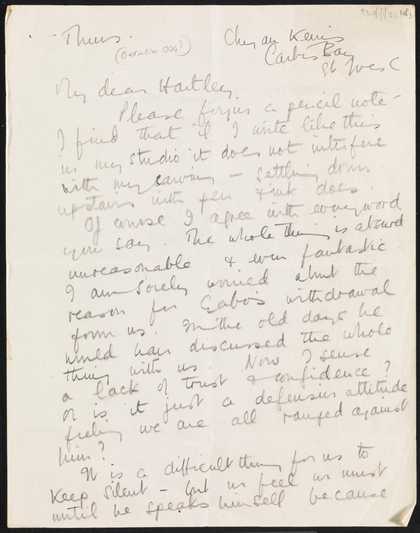 Thurs.
Chy an Kerris
Carbis Bay
St Ives C
My dear Hartley
Please forgive a pencil note -
I find that if I write like this
in my studio it does not interfere
with my carving - settling down
upstairs with pen & ink does
Of course I agree with every word
you say. The whole thing is absurd
unreasonable & even fantastic
I am sorely worried about the
reason for Gabo's withdrawal
from us. In the old days he
would have discussed the whole
thing with us. Now I sense
a lack of trust & confidence?
or is it just a defensive attitude
feeling we are all ranged against
him?
It is a difficult thing for us to
keep silent - but we feel we must
until he speaks himself because